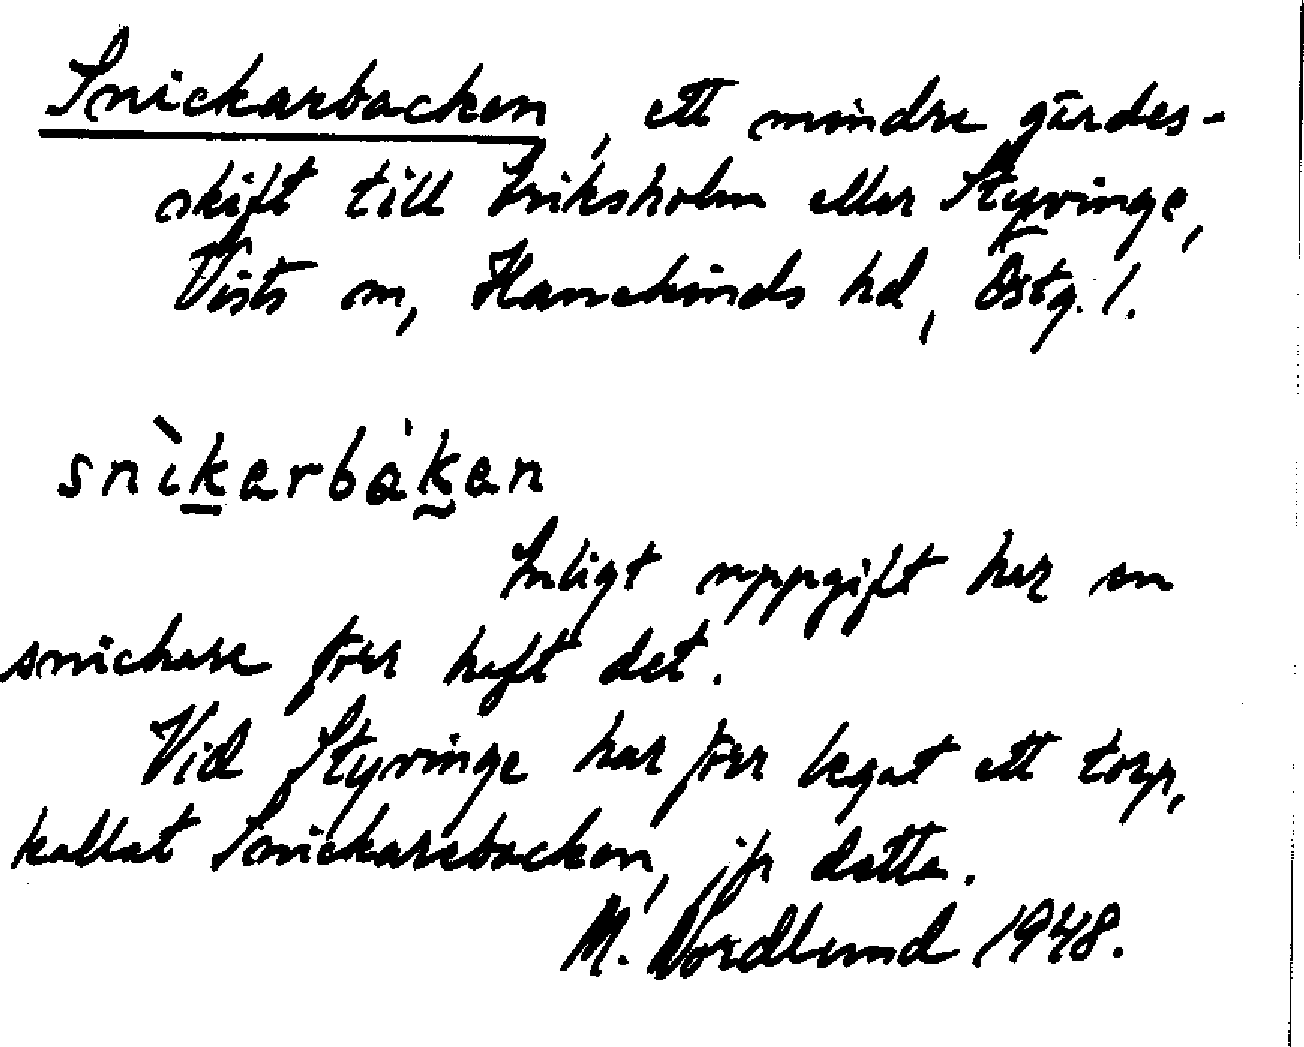 Snickarbacken, ett mindre gärdes-
skift till Eriksholm eller Styvinge,
Vists sn, Hanekinds hd, Östg. l.
snìkarbákan
Enligt uppgift har en
snickare förr haft det.
Vid Styvinge har förr legat ett torp,
kallat Snickarebacken, jfr detta.
M. Nordlund 1948.